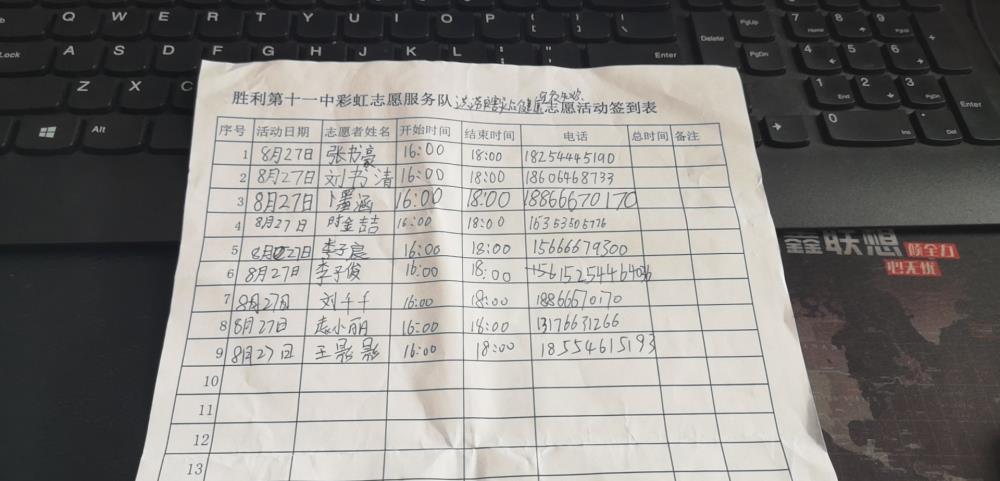 Q W E R T Y U I O P
A S D F G H J K L
Enter
Z X C
Alt
Delete
PgUp
PgDn
7 8 9
Home
PgUp
4 5 6
1 2 3
End
PgDn
0
Ins
Del
Enter
胜利第十一中彩虹志愿服务队 志愿活动签到表
序号 活动日期 志愿者姓名 开始时间 结束时间 电话 总时间 备注
1 8月27日 张书豪 16:00 18:00 18254445190
2 8月27日 刘书清 16:00 18:00 18606468733
3 8月27日 卜墨涵 16:00 18:00 18866670170
4 8月27日 时金喆 16:00 18:00 15353505776
5 8月27日 李子宸 16:00 18:00 15666679300
6 8月27日 李子俊 16:00 18:00
7 8月27日 刘千千 16:00 18:00 18866670170
8 8月27日 袁小丽 16:00 18:00 13176631266
9 8月27日 王影影 16:00 18:00 18554615193
10
11
12
13
鑫联想
倾全力
心无忧